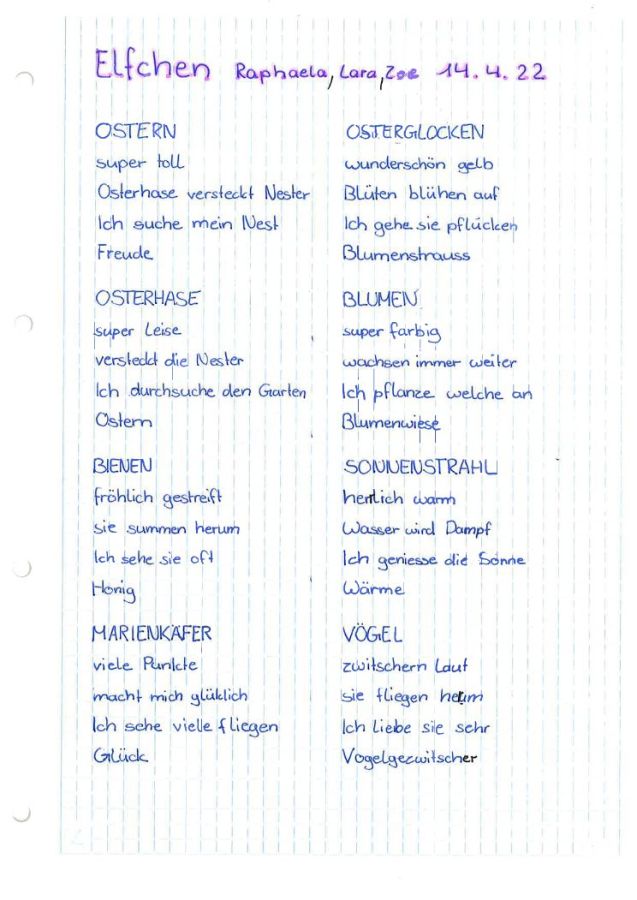 Elfchen Raphaela, Lara, Zoe 14.4.22
OSTERN
super toll
Osterhase versteckt Nester
Ich suche mein Nest
Freude
OSTERHASE
super Leise
versteckt die Nester
Ich durchsuche den Garten
Ostern
BIENEN
fröhlich gestreift
sie summen herum
Ich sehe sie oft
Honig
MARIENKÄFER
viele Punkte
macht mich glüklich
Ich sehe vielle fliegen
Glück
OSTERGLOCKEN
wunderschön gelb
Blüten blühen auf
Ich gehe sie pflücken
Blumenstrauss
BLUMEN
super farbig
wachsen immer weiter
Ich pflanze welche an
Blumenwiese
SONNENSTRAHL
herrlich warm
Wasser wird Dampf
Ich geniesse die Sonne
Wärme
VÖGEL
zwitschern Laut
sie fliegen herum
Ich Liebe sie sehr
Vogelgezwitscher